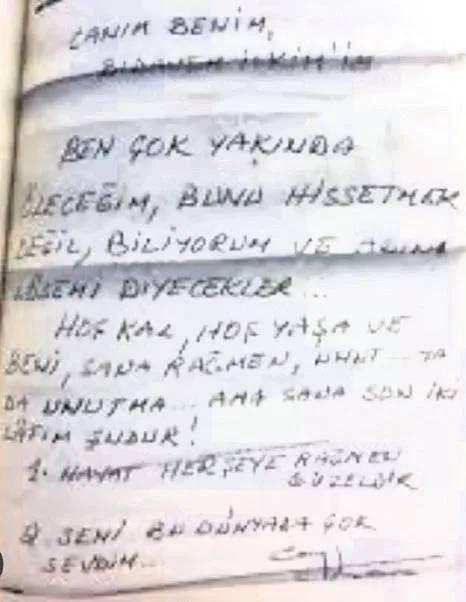 CANIM BENİM,
BİTANEM İLKİM'İM
BEN ÇOK YAKINDA
ÖLECEĞİM, BUNU HİSSETMEK
DEĞİL, BİLİYORUM VE ADINA
LÖSEMİ DİYECEKLER...
HOŞ KAL, HOŞ YAŞA VE
BENİ, SANA RAĞMEN, UNUT... YA
DA UNUTMA... AMA SANA SON İKİ
LÂFIM ŞUDUR!
1. HAYAT HERŞEYE RAĞMEN
GÜZELDİR
2) SENİ BU DÜNYADA ÇOK
SEVDİM...